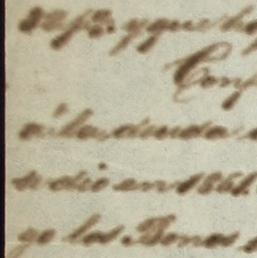 82 p%. y que ho
Conf
á la deuda
se dio en 1861.
go los Bonos